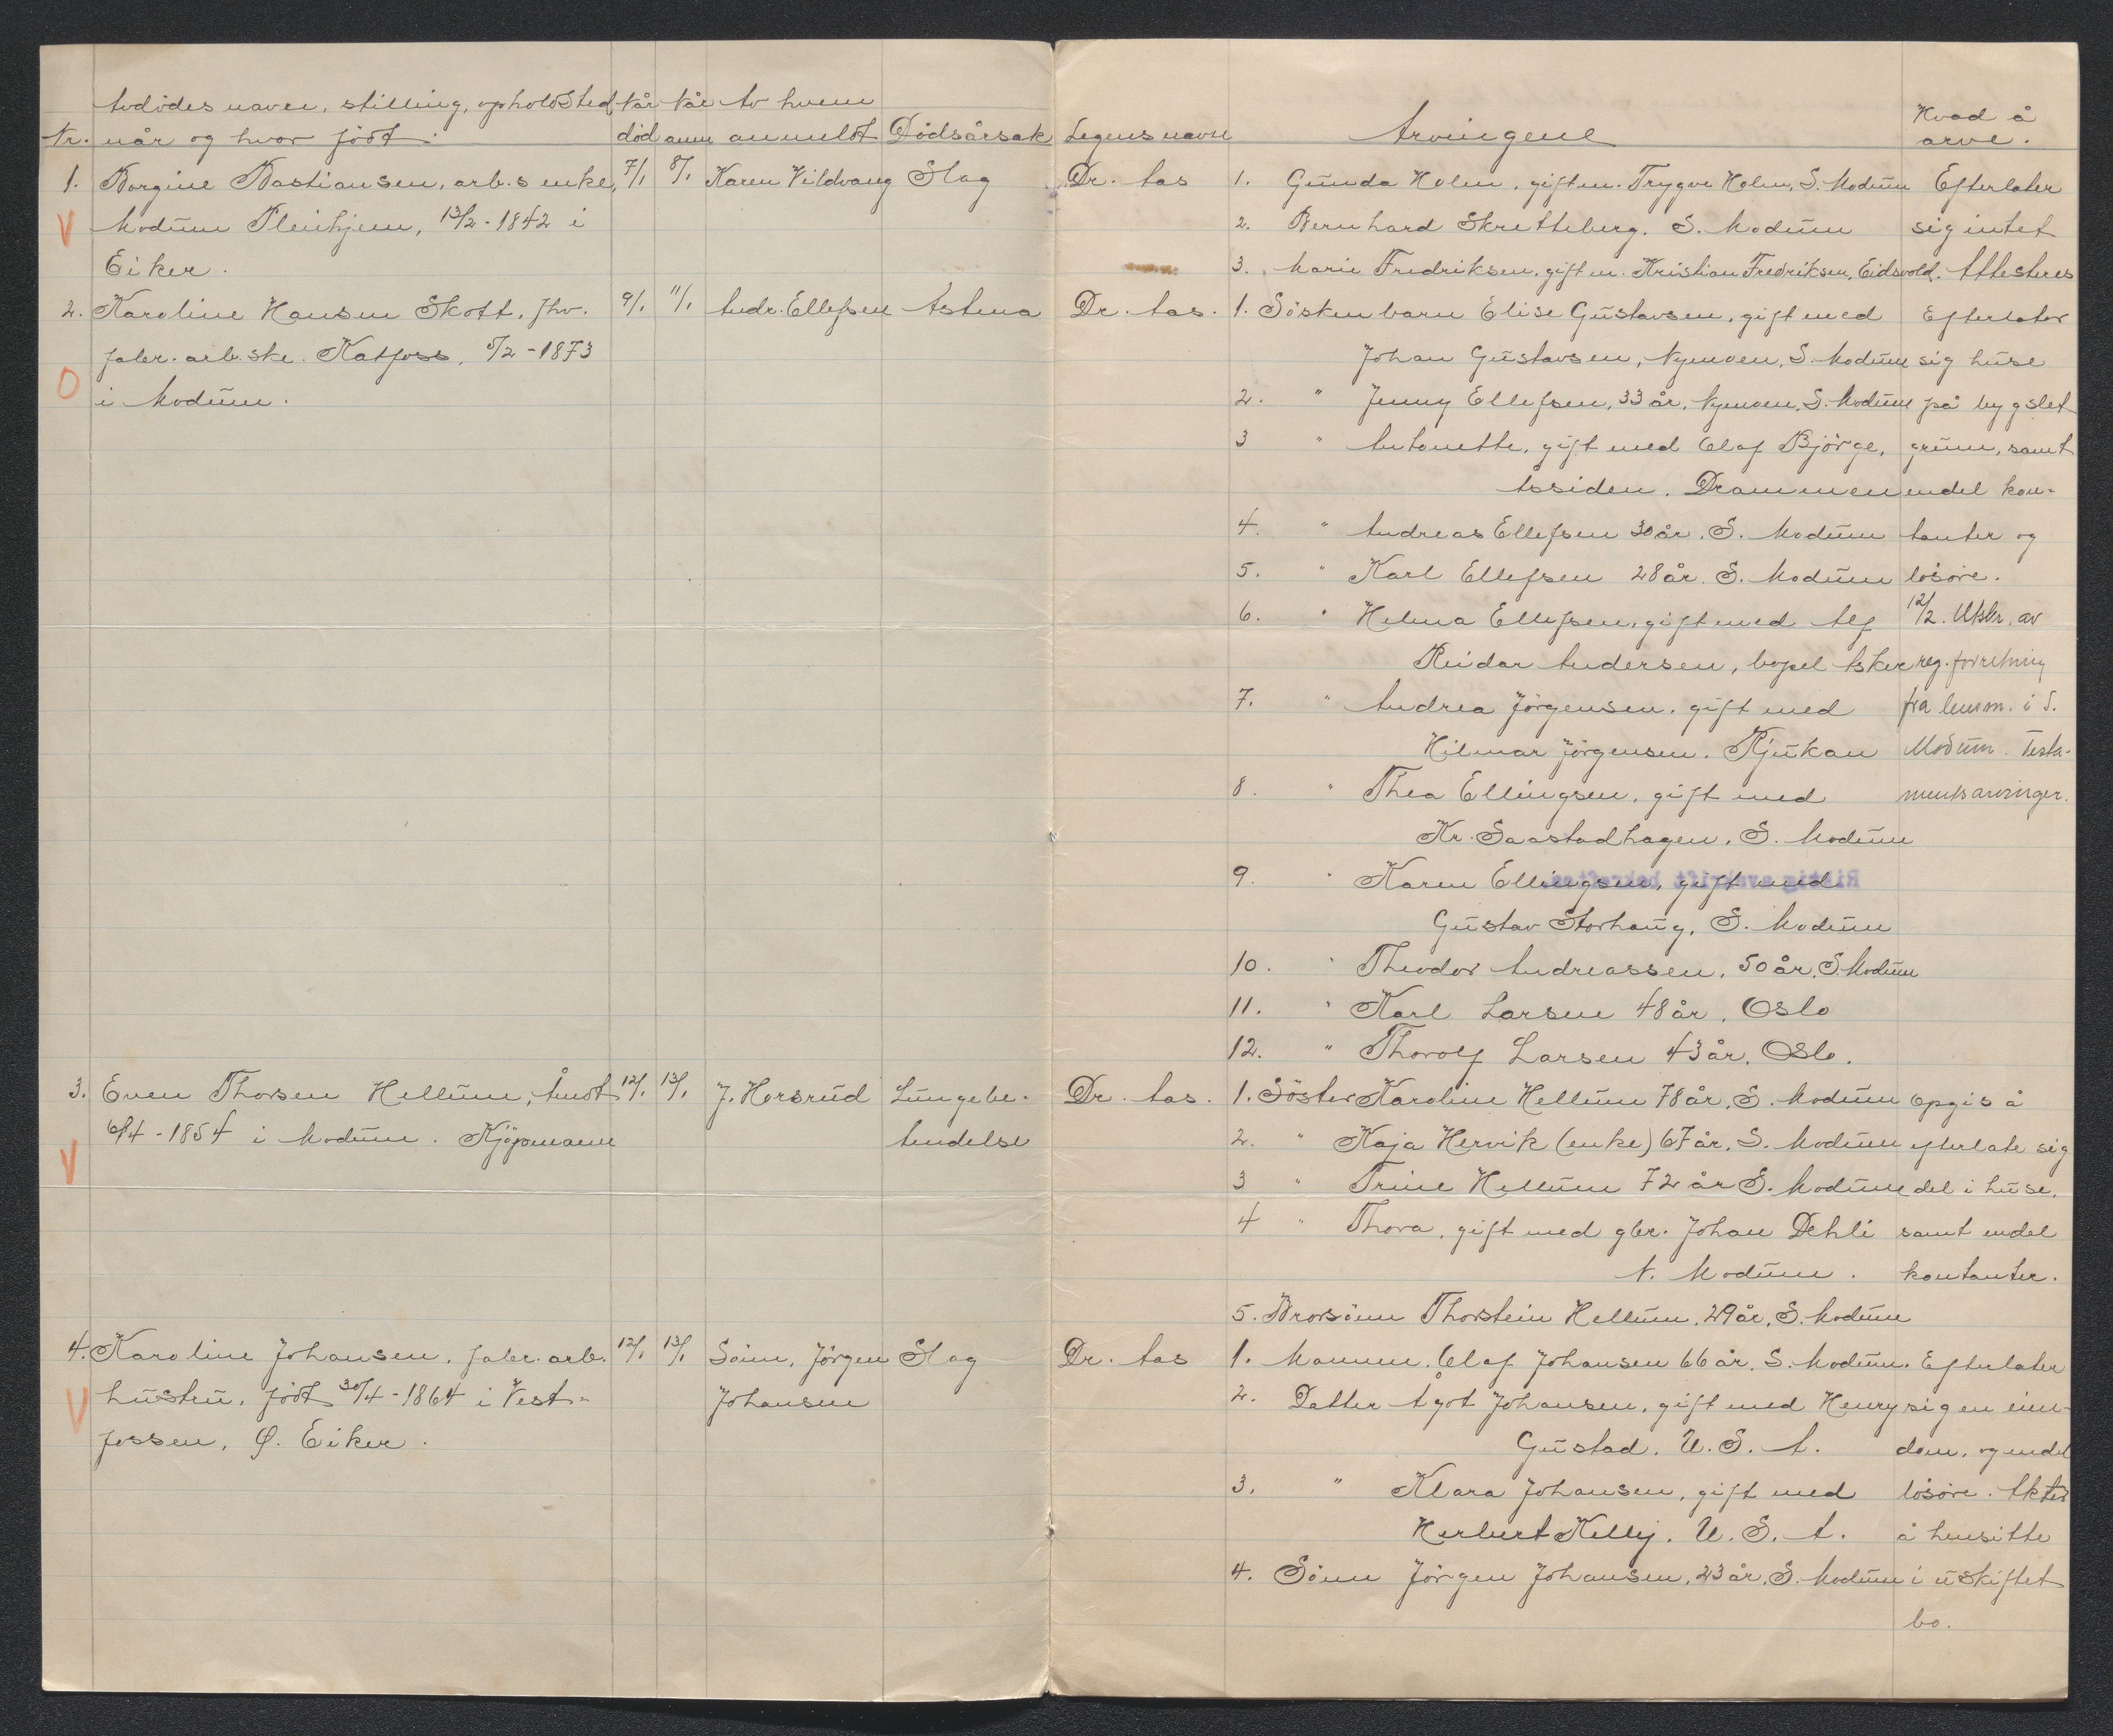 Avdödes navn, stilling, opholdsted Når Når Av hvem
Nr. når og hvor född. död anm anmeldt Dödsårsak Legens navn Arvingene Hvad å arve.
1. Borgine Bastiansen, arb.s enke, 7/1 8/1 Karen Vildvang Slag Dr. Aas 1. Gunda Holm, gift m. Trygve Holm, S. Modum Efterlater
V Modum Pleiehjem, 13/2-1842 i 2. Bernhard Skretteberg. S. Modum sig intet
Eiker. 3. Marie Fredriksen, gift m. Kristian Fredriksen, Eidsvold. Attesteres
2. Karoline Hansen Skott, fhv. 9/1 11/1 Andr. Ellefsen Astma Dr. Aas. 1. Söskenbarn Elise Gustavsen, gift med Efterlater
fabr. arb.ske. Katfoss, 5/2-1873 Johan Gustavsen, Nymoen, S. Modum sig huse
O i Modum. 2. " Jenny Ellefsen, 33 år, Nymoen, S. Modum på bygslet
3 " Antonette, gift med Olaf Björge, grunn, samt
Åssiden, Drammen endel kon-
4. " Andreas Ellefsen 30 år. S. Modum tanter og
5. " Karl Ellefsen 28 år. S. Modum lösöre.
6. " Helma Ellefsen, gift med Alf 12/2. Utskr. av
Reidar Andersen, bopel Asker reg. forretning
7. " Andrea Jörgensen, gift med fra lensm. i S.
Hilmar Jörgensen. Rjukan Modum. Testa-
8. " Thea Ellingsen, gift med mentsarvinger.
Kr. Saastadhagen, S. Modum
9. " Karen Ellingsen, gift med
Riktig avskrift bekreftes
Gustav Storhaug, S. Modum
10. " Theodor Andreassen, 50 år, S. Modum
11. " Karl Larsen 48 år, Oslo
12. " Thorolf Larsen 43 år. Oslo.
3. Even Thorsen Hellum, Åmot 12/1 13/1 J. Horsrud Lungebe- Dr. Aas. 1. Söster Karoline Hellum 78 år, S. Modum Opgis å
6/4-1854 i Modum. Kjöpmann tendelse 2. " Kaja Hervik (enke) 67 år, S. Modum efterlate sig
V 3 " Trine Hellum 72 år S. Modum del i huse,
4 " Thora, gift med gbr. Johan Dehli samt endel
N. Modum. kontanter.
5. Brorsönn Thorstein Hellum, 29 år, S. Modum
4. Karoline Johansen, fabr. arb. 12/1 13/1 Sönn, Jörgen Slag Dr. Aas 1. Mannen. Olaf Johansen 66 år, S. Modum. Efterlater
V hustru, född 30/4-1864 i Vest- Johansen 2. Datter Ågot Johansen, gift med Henry sig en eien-
fossen, Ö. Eiker. Gustad. U.S.A. dom, og endel
3. " Klara Johansen, gift med lösöre. Akter
Herbert Kelly. U.S.A. å hensitte
4. Sönn Jörgen Johansen, 23 år, S. Modum i uskiftet
bo.